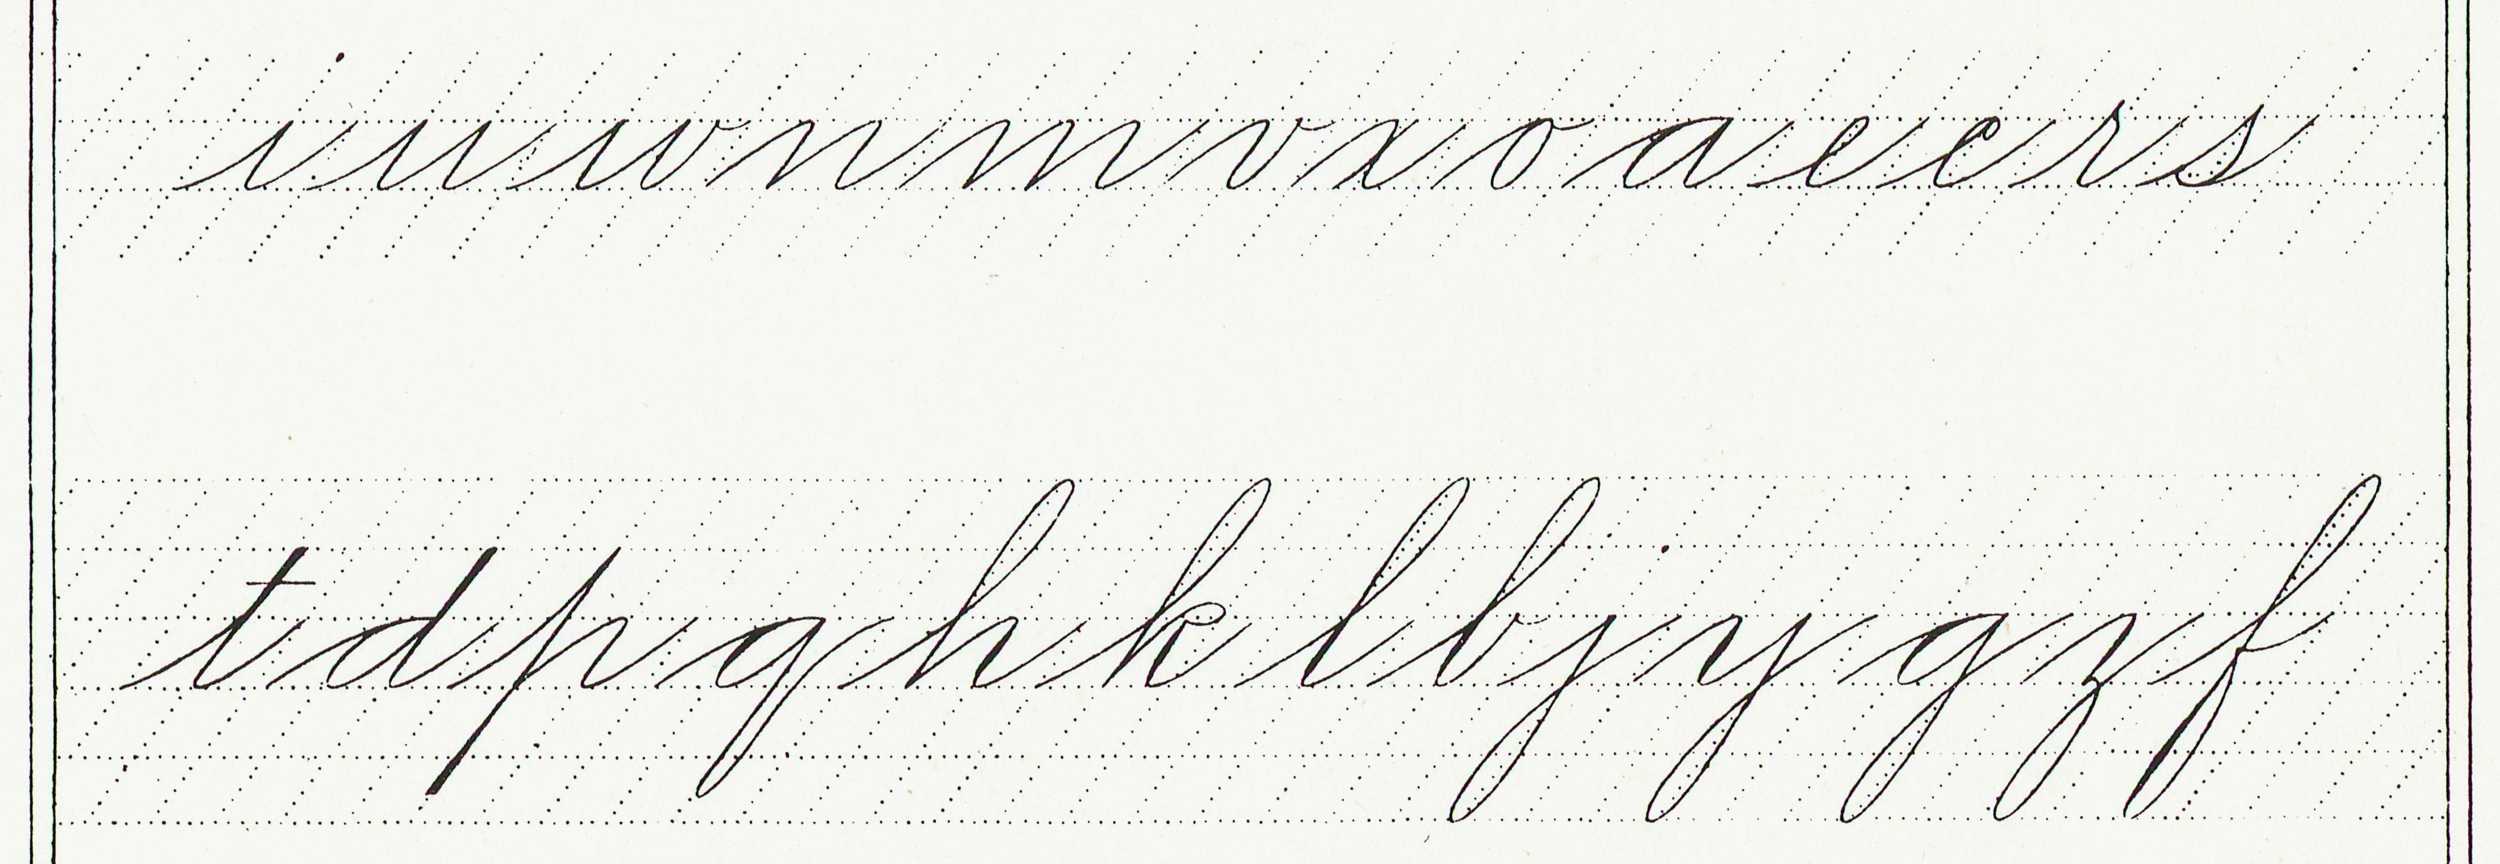 i u w n m v x o a e c r s
t d p q h k l b j y g z f